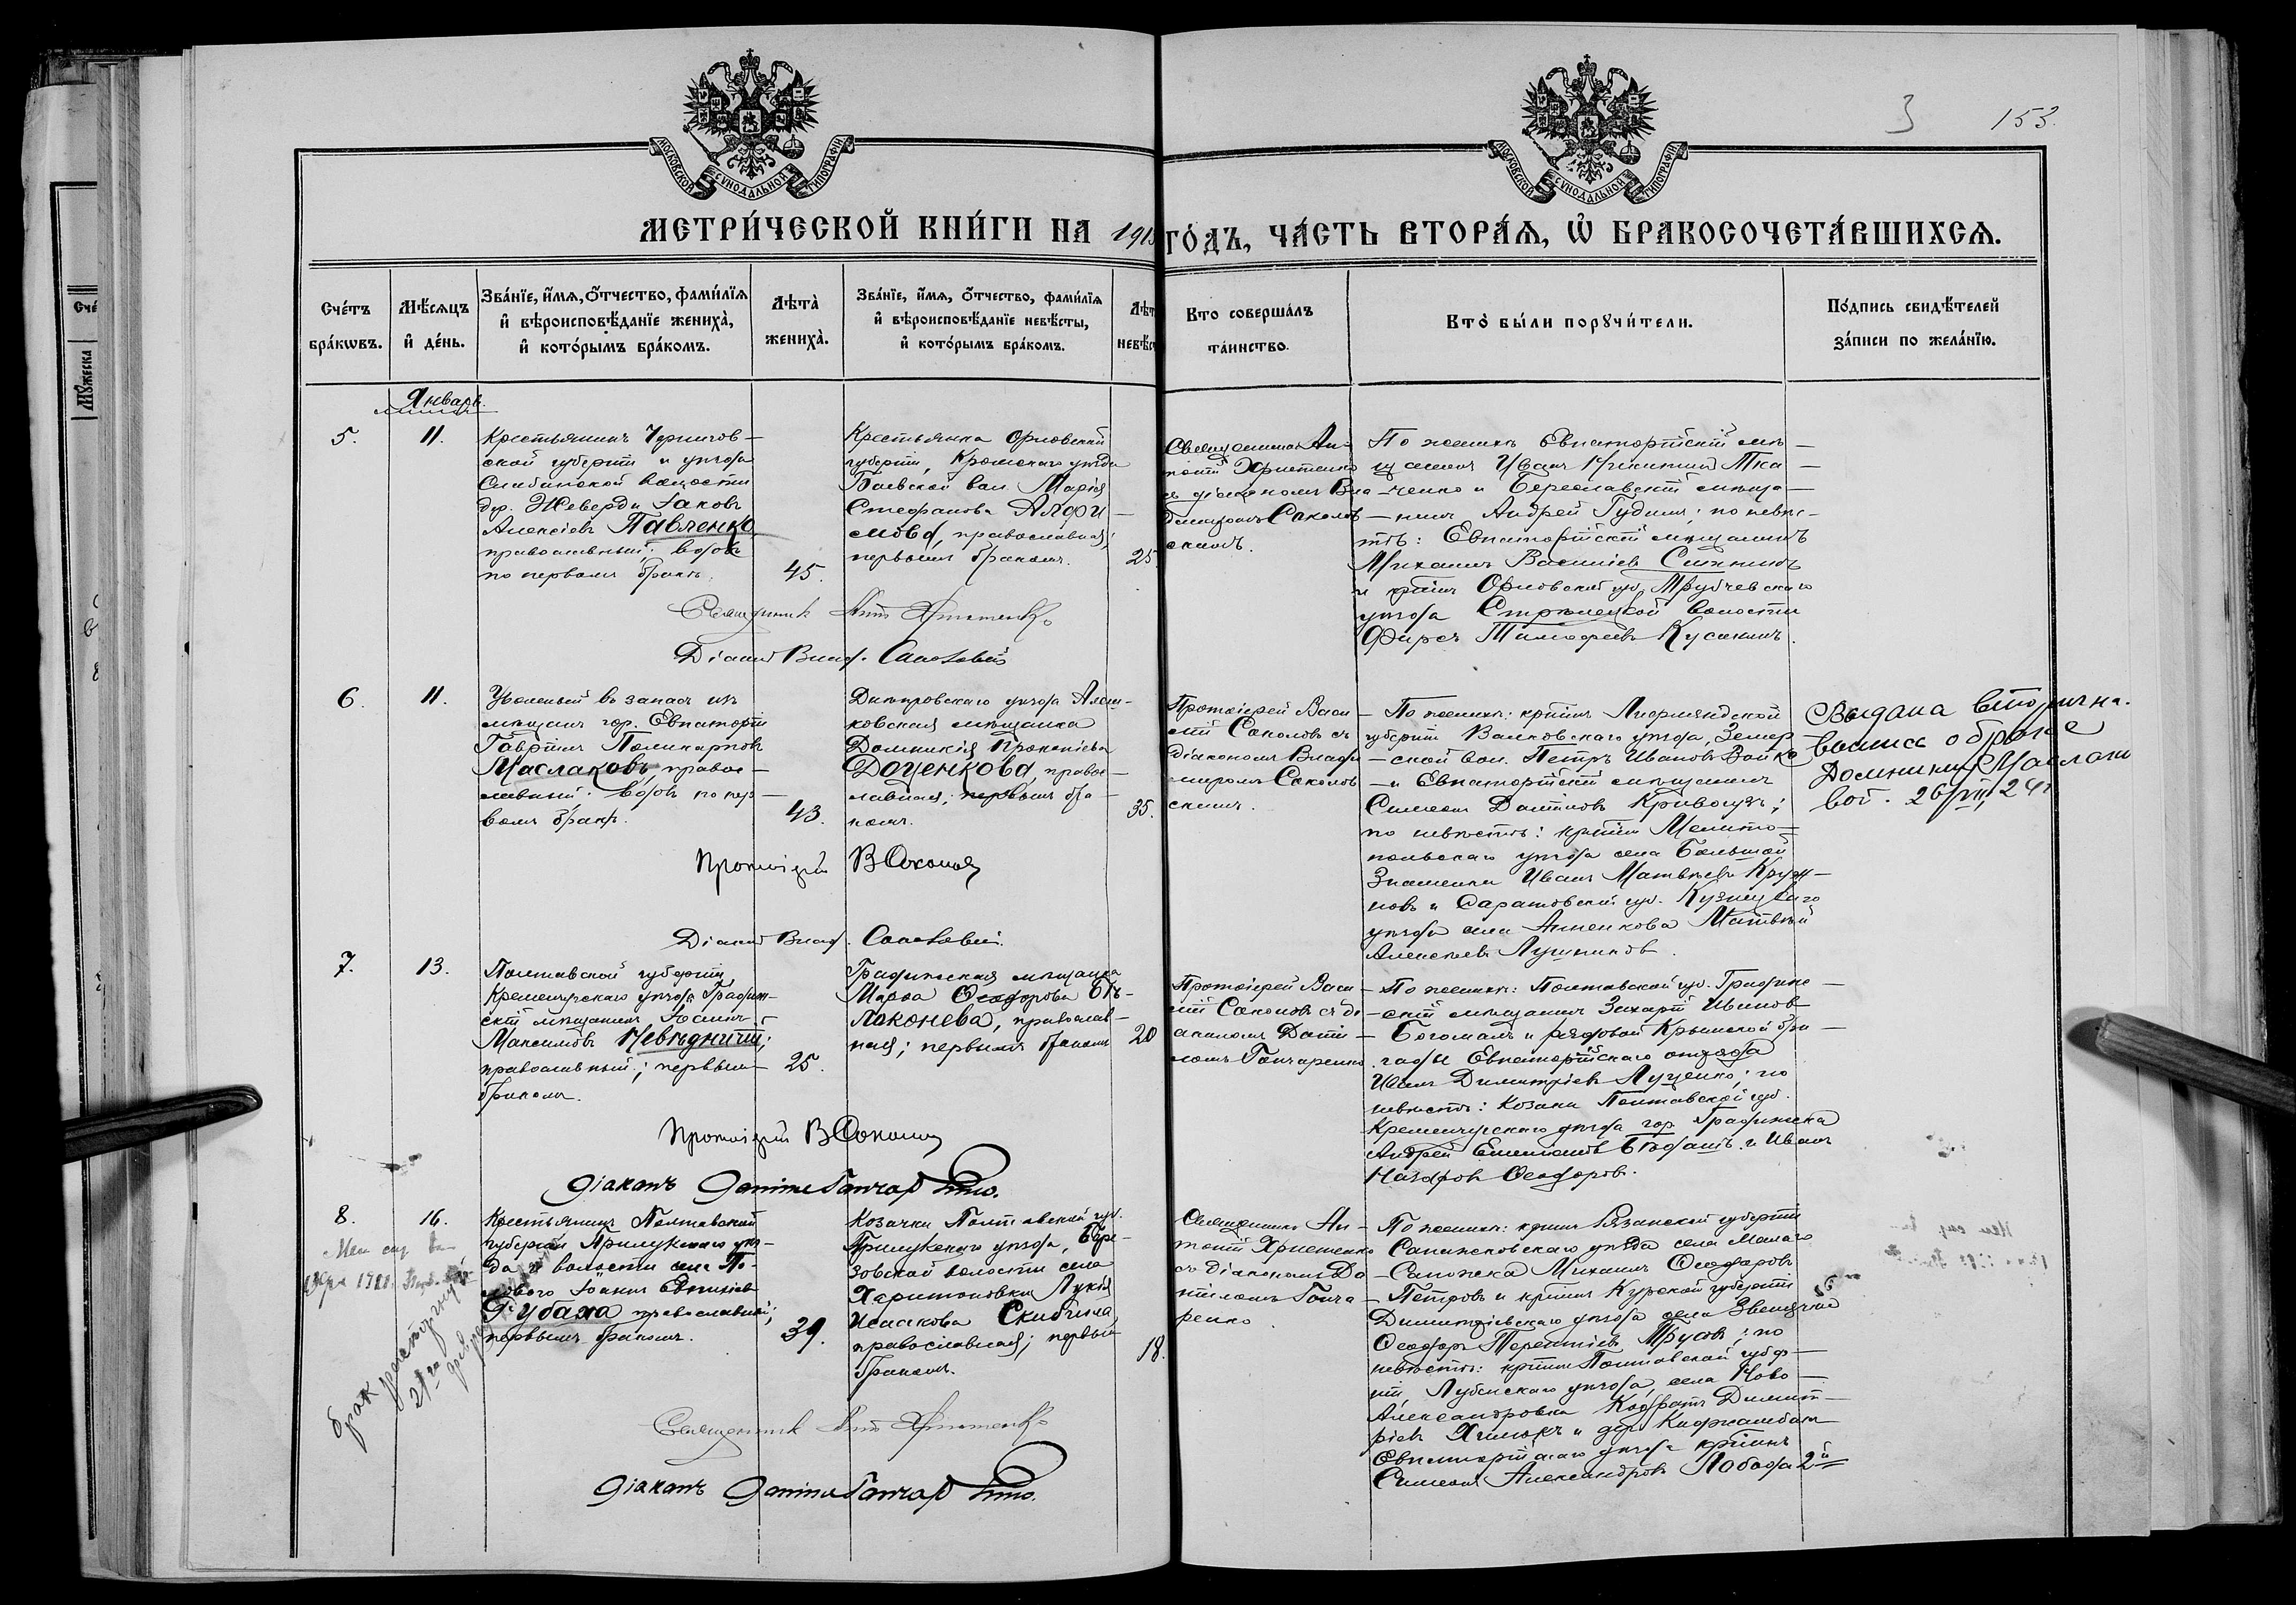 3 153.
МОСКОВСКОЙ СѴНОДАЛЬНОЙ ТИПОГРАФІИ
МОСКОВСКОЙ СѴНОДАЛЬНОЙ ТИПОГРАФІИ
МЕТРИ́ЧЕСКОЙ КНИ́ГИ НА 1915 ГО́ДЪ, ЧА́СТЬ ВТОРА́Я, Ѡ БРАКОСОЧЕТА́ВШИХСЯ.
Сче́тъ бра́кѡвъ.
Мѣ́сяцъ и де́нь.
Зва́нїе, и́мя, о́тчество, фами́лїя и вѣроисповѣ́данїе жениха̀, и кото́рымъ бра́комъ.
Лѣта̀ жениха̀.
Зва́нїе, и́мя, о́тчество, фами́лїя и вѣроисповѣ́данїе невѣ́сты, и кото́рымъ бра́комъ.
Лѣт невѣс
Кто соверша́лъ та́инство.
Кто̀ бы́ли порꙋчи́тели.
По́дпись свидѣ́телей за́писи по жела́нїю.
Январь.
5.
11.
Крестьянинъ Чернигов-
ской губерніи и уѣзда
Слабинской волости
дер. Жеверди Іаковъ
Алексіевъ Павленко,
православный; вдовъ
по первомъ бракѣ.
45.
Крестьянка Орловской
губерніи, Кромскаго уѣзда
Марія
Стефанова
православная;
первымъ бракомъ.
25
Священникъ Ан-
тоній Христенко
съ діакономъ Вла-
диміромъ Соколов-
скимъ.
По женихѣ Евпаторійскій мѣ-
щанинъ Иванъ Никитинъ Тка-
ченко и Бериславскій мѣща-
нинъ Андрей Гудимъ; по невѣ-
стѣ: Евпаторійскій мѣщанинъ
Михаилъ Василіевъ
и кр-нинъ Орловской губ. Трубчевскаго
уѣзда Стрѣлецкой волости
Фирсъ Тимофеевъ Кусакинъ.
Священникъ Ант. Христенко
Діаконъ Влад. Соколовскій
6.
11.
Уволенный въ запасъ изъ
мѣщанъ гор. Евпаторіи
Гавріилъ Поликарповъ
Маслаковъ, правос-
лавный; вдовъ по пер-
вомъ бракѣ.
43.
Днѣпровскаго уѣзда Алеш-
ковская мѣщанка
Домникія Прокопіева
Доценкова, правос-
лавная; первымъ бра-
комъ.
35.
Протоіерей Васи-
лій Соколовъ съ
діакономъ Влади-
миромъ Соколов-
скимъ.
По женихѣ: кр-нинъ Лифляндской
губерніи Валковскаго уѣзда,
ской вол. Петръ Ивановъ
и Евпаторійскій мѣщанинъ
Симеонъ Даніиловъ
по невѣстѣ: кр-нинъ Мелито-
польскаго уѣзда села Большой
Знаменки Иванъ Матвѣевъ
и Саратовской губ. Кузнецкаго
уѣзда села Анненкова Матвѣй
Алексѣевъ Лушниковъ.
Выдана вторична.
выпись о бракѣ
Домникіи Маслако
вой. 26/VII 24 г
Протоіерей В Соколовъ
Діаконъ Влад. Соколовскій.
7.
13.
Полтавской губерніи
Кременчугскаго уѣзда Градиж-
скій мѣщанинъ Іоаннъ
Максимовъ Невѣдничій;
православный; первымъ
бракомъ.
25.
Градижская мѣщанка
Марѳа Ѳеодорова Бѣ-
локонева, православ-
ная; первымъ бракомъ
20
Протоіерей Васи-
лій Соколовъ съ ді-
акономъ Дани-
ломъ Гончаренко.
По женихѣ: Полтавской губ. Градиж-
скій мѣщанинъ Захарій Ивановъ
Богомазъ и рядовой Крымской бри-
гады Евпаторійскаго отряда
Иванъ Димитріевъ Луценко; по
невѣстѣ: козаки Полтавской губ.
Кременчугскаго уѣзда гор. Градижска
Андрей и Иванъ
Назаровъ Ѳеодоровъ.
Протоіерей В Соколовъ
Діаконъ Даниилъ Гончаренко.
8.
16.
Крестьянинъ Полтавской
губерніи Прилукскаго уѣз-
да и волости села
Іоаннъ
Дубаха православный;
первымъ бракомъ.
39.
Козачка Полтавской губ.
Прилукскаго уѣзда, Бере-
зовской волости села
Харитоновки Лукія
Исаакова Скибина,
православная; первымъ
бракомъ.
18.
Священникъ Ан-
тоній Христенко
съ діакономъ Да-
ниломъ Гонча-
ренко.
По женихѣ: кр-нинъ Рязанской губерніи
Сапожковскаго уѣзда села Малаго
Сапожка Михаилъ Ѳеодоровъ
Петровъ и кр-нинъ Курской губерніи
Димитріевскаго уѣзда села
Ѳеодоръ Терентіевъ Трусовъ; по
невѣстѣ: кр-нинъ Полтавской губер-
ніи, Лубенскаго уѣзда, села Ново-
Александровка Кодратъ Димит-
ріевъ и дер.
Евпаторійскаго уѣзда кр-нинъ
Симеонъ Александровъ Лобода 2й
брак расторгнут
21го
Священникъ Ант. Христенко
Діаконъ Даниилъ Гончаренко.